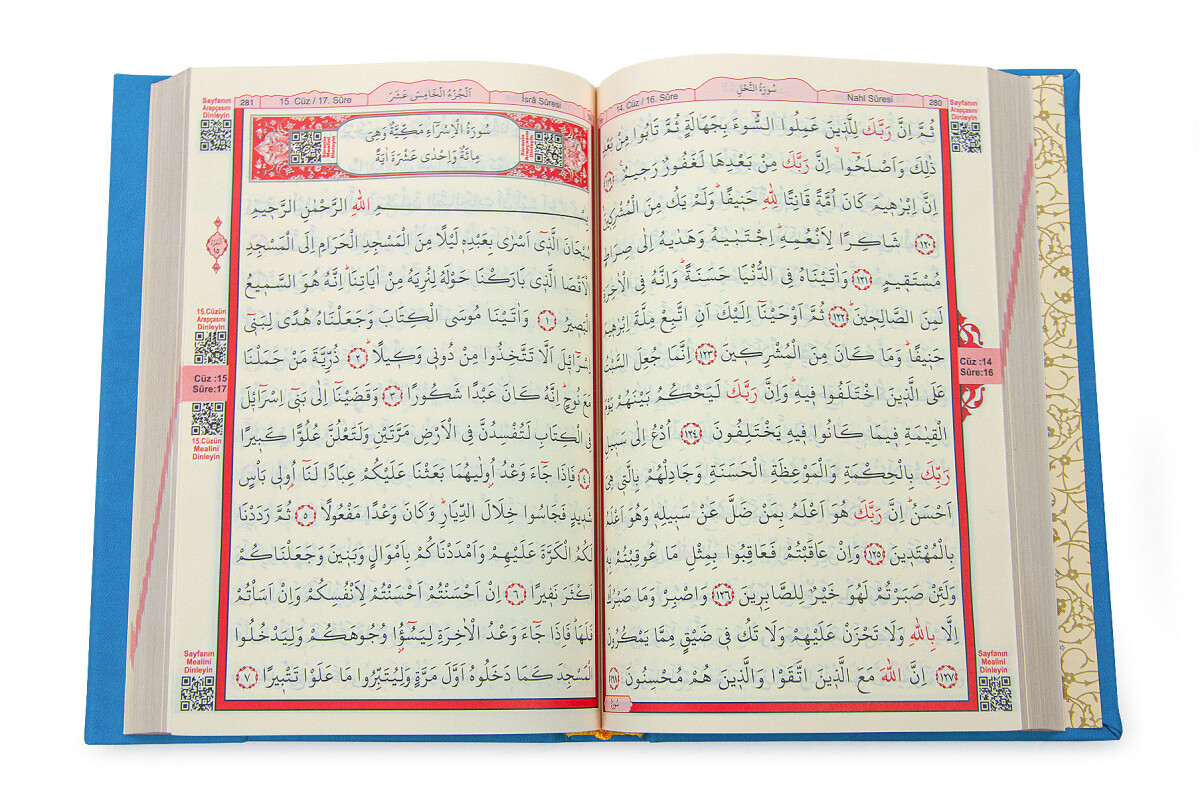 280
Nahl Sûresi
سُورَةُ النَّحْلِ
14. Cüz / 16. Sûre
Sayfanın
Arapçasını
Dinleyin
ثُمَّ اِنَّ رَبَّكَ لِلَّذٖينَ عَمِلُوا السُّٓوءَ بِجَهَالَةٍ ثُمَّ تَابُوا مِنْ بَعْدِ
ذٰلِكَ وَاَصْلَحُٓوا اِنَّ رَبَّكَ مِنْ بَعْدِهَا لَغَفُورٌ رَحٖيمٌ ﴿١١٩﴾
اِنَّ اِبْرٰهٖيمَ كَانَ اُمَّةً قَانِتًا لِلّٰهِ حَنٖيفًا وَلَمْ يَكُ مِنَ الْمُشْرِكٖينَ
﴿١٢٠﴾ شَاكِرًا لِاَنْعُمِهٖ اِجْتَبٰيهُ وَهَدٰيهُ اِلٰى صِرَاطٍ
مُسْتَقٖيمٍ ﴿١٢١﴾ وَاٰتَيْنَاهُ فِي الدُّنْيَا حَسَنَةً وَاِنَّهُ فِي الْاٰخِرَةِ
لَمِنَ الصَّالِحٖينَ ﴿١٢٢﴾ ثُمَّ اَوْحَيْنَٓا اِلَيْكَ اَنِ اتَّبِعْ مِلَّةَ اِبْرٰهٖيمَ
حَنٖيفًا وَمَا كَانَ مِنَ الْمُشْرِكٖينَ ﴿١٢٣﴾ اِنَّمَا جُعِلَ السَّبْتُ
عَلَى الَّذٖينَ اخْتَلَفُوا فٖيهِ وَاِنَّ رَبَّكَ لَيَحْكُمُ بَيْنَهُمْ يَوْمَ
الْقِيٰمَةِ فٖيمَا كَانُوا فٖيهِ يَخْتَلِفُونَ ﴿١٢٤﴾ اُدْعُ اِلٰى سَبٖيلِ
رَبِّكَ بِالْحِكْمَةِ وَالْمَوْعِظَةِ الْحَسَنَةِ وَجَادِلْهُمْ بِالَّتٖي هِيَ
اَحْسَنُ اِنَّ رَبَّكَ هُوَ اَعْلَمُ بِمَنْ ضَلَّ عَنْ سَبٖيلِهٖ وَهُوَ اَعْلَمُ
بِالْمُهْتَدٖينَ ﴿١٢٥﴾ وَاِنْ عَاقَبْتُمْ فَعَاقِبُوا بِمِثْلِ مَا عُوقِبْتُمْ بِهٖ
وَلَئِنْ صَبَرْتُمْ لَهُوَ خَيْرٌ لِلصَّابِرٖينَ ﴿١٢٦﴾ وَاصْبِرْ وَمَا صَبْرُكَ
اِلَّا بِاللّٰهِ وَلَا تَحْزَنْ عَلَيْهِمْ وَلَا تَكُ فٖي ضَيْقٍ مِمَّا يَمْكُرُونَ
﴿١٢٧﴾ اِنَّ اللّٰهَ مَعَ الَّذٖينَ اتَّقَوْا وَالَّذٖينَ هُمْ مُحْسِنُونَ ﴿١٢٨﴾
Cüz :14
Sûre:16
Sayfanın
Mealini
Dinleyin
İsrâ Sûresi
اَلْجُزْءُ الْخَامِسَ عَشَرَ
15. Cüz / 17. Sûre
281
Sayfanın
Arapçasını
Dinleyin
سُورَةُ الْاِسْرَٓاءِ مَكِّيَّةٌ وَهِيَ
مِائَةٌ وَاِحْدٰى عَشْرَةَ اٰيَةً
بِسْمِ اللّٰهِ الرَّحْمٰنِ الرَّحٖيمِ
سُبْحَانَ الَّذٖٓي اَسْرٰى بِعَبْدِهٖ لَيْلًا مِنَ الْمَسْجِدِ الْحَرَامِ اِلَى الْمَسْجِدِ
الْاَقْصَا الَّذٖي بَارَكْنَا حَوْلَهُ لِنُرِيَهُ مِنْ اٰيَاتِنَا اِنَّهُ هُوَ السَّمٖيعُ
الْبَصٖيرُ ﴿١﴾ وَاٰتَيْنَا مُوسَى الْكِتَابَ وَجَعَلْنَاهُ هُدًى لِبَنٖٓي
اِسْرَٓائٖلَ اَلَّا تَتَّخِذُوا مِنْ دُونٖي وَكٖيلًا ﴿٢﴾ ذُرِّيَّةَ مَنْ حَمَلْنَا
مَعَ نُوحٍ اِنَّهُ كَانَ عَبْدًا شَكُورًا ﴿٣﴾ وَقَضَيْنَٓا اِلٰى بَنٖٓي اِسْرَٓائٖلَ
فِي الْكِتَابِ لَتُفْسِدُنَّ فِي الْاَرْضِ مَرَّتَيْنِ وَلَتَعْلُنَّ عُلُوًّا كَبٖيرًا
﴿٤﴾ فَاِذَا جَٓاءَ وَعْدُ اُو۫لٰيهُمَا بَعَثْنَا عَلَيْكُمْ عِبَادًا لَنَٓا اُو۬لٖي بَأْسٍ
شَدٖيدٍ فَجَاسُوا خِلَالَ الدِّيَارِ وَكَانَ وَعْدًا مَفْعُولًا ﴿٥﴾ ثُمَّ رَدَدْنَا
لَكُمُ الْكَرَّةَ عَلَيْهِمْ وَاَمْدَدْنَاكُمْ بِاَمْوَالٍ وَبَنٖينَ وَجَعَلْنَاكُمْ
اَكْثَرَ نَفٖيرًا ﴿٦﴾ اِنْ اَحْسَنْتُمْ اَحْسَنْتُمْ لِاَنْفُسِكُمْ وَاِنْ اَسَأْتُمْ
فَلَهَا فَاِذَا جَٓاءَ وَعْدُ الْاٰخِرَةِ لِيَسُٓؤُ۫ا وُجُوهَكُمْ وَلِيَدْخُلُوا
الْمَسْجِدَ كَمَا دَخَلُوهُ اَوَّلَ مَرَّةٍ وَلِيُتَبِّرُوا مَا عَلَوْا تَتْبٖيرًا ﴿٧﴾
15.Cüzün
Arapçasını
Dinleyin
Cüz :15
Sûre:17
15.Cüzün
Mealini
Dinleyin
Sayfanın
Mealini
Dinleyin